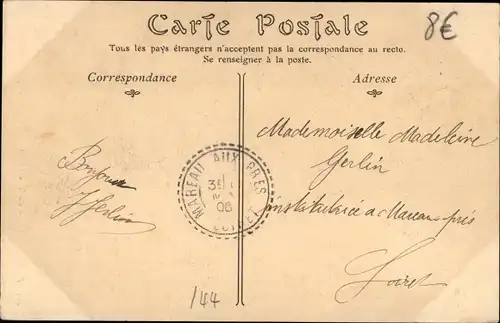 Carte Postale
8€
Tous les pays étrangers n'acceptent pas la correspondance au recto.
Se renseigner à la poste.
Correspondance
Adresse
Bonjour
Gerlin
MAREAU AUX PRÉS
06
LOIRET
Mademoiselle Madeleine
Gerlin
institutrice a Mareau prés
Loiret
/44